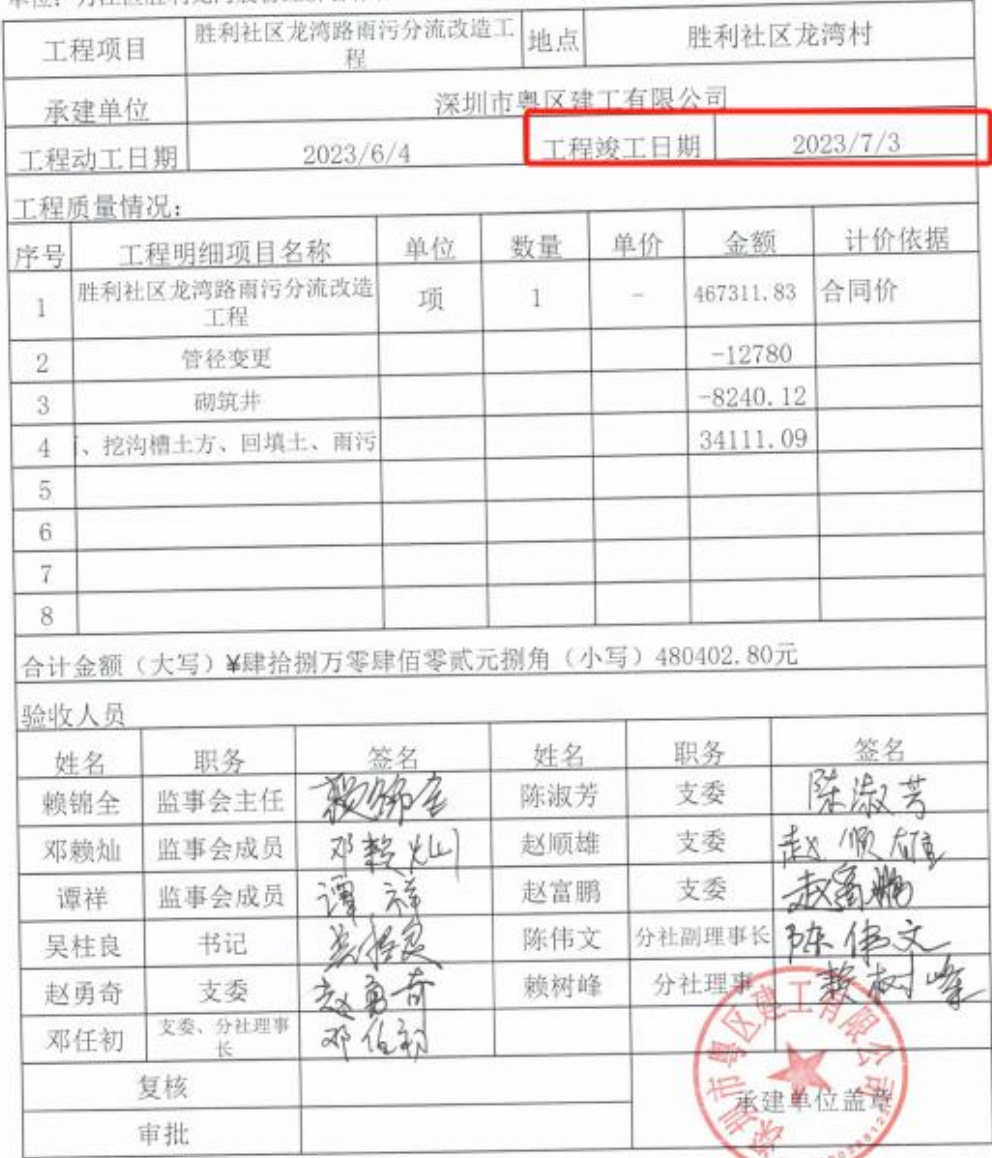 工程项目 胜利社区龙湾路雨污分流改造工 地点 胜利社区龙湾村
程
承建单位 深圳市粤区建工有限公司
工程动工日期 2023/6/4 工程竣工日期 2023/7/3
工程质量情况:
序号 工程明细项目名称 单位 数量 单价 金额 计价依据
1 胜利社区龙湾路雨污分流改造 项 1 - 467311.83 合同价
工程
2 管径变更 -12780
3 砌筑井 -8240.12
4 、挖沟槽土方、回填土、雨污 34111.09
5
6
7
8
合计金额（大写）¥肆拾捌万零肆佰零贰元捌角（小写）480402.80元
验收人员
姓名 职务 签名 姓名 职务 签名
赖锦全 监事会主任 赖锦全 陈淑芳 支委 陈淑芳
邓赖灿 监事会成员 邓赖灿 赵顺雄 支委 赵顺雄
谭祥 监事会成员 谭祥 赵富鹏 支委 赵富鹏
吴柱良 书记 吴柱良 陈伟文 分社副理事长 陈伟文
赵勇奇 支委 赵勇奇 赖树峰 分社理事 赖树峰
邓任初 支委、分社理事 邓任初
长
复核
审批
承建单位盖章
深圳市粤区建工有限公司